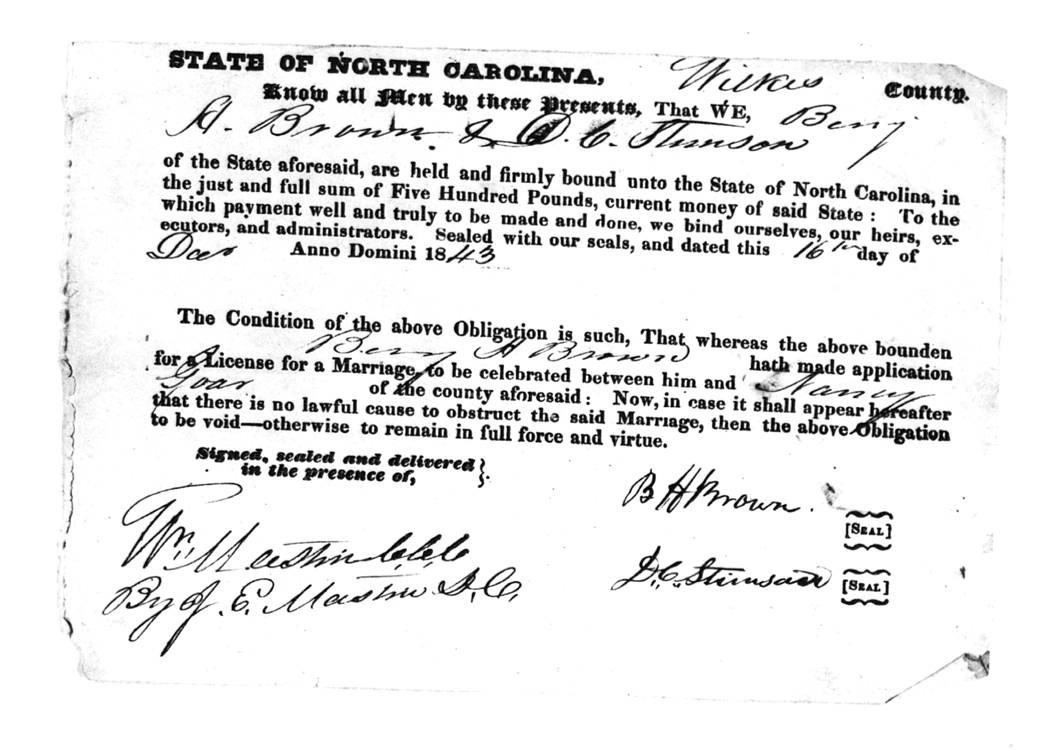 STATE OF NORTH CAROLINA, Wilkes County.
Know all Men by these Presents, That WE, Berry
H. Brown & D. C. Stimson
of the State aforesaid, are held and firmly bound unto the State of North Carolina, in
the just and full sum of Five Hundred Pounds, current money of said State: To the
which payment well and truly to be made and done, we bind ourselves, our heirs, ex-
ecutors, and administrators. Sealed with our seals, and dated this 16th day of
Dec Anno Domini 1843
The Condition of the above Obligation is such, That whereas the above bounden
Berry H Brown hath made application
for a License for a Marriage, to be celebrated between him and Nancy
of the county aforesaid: Now, in case it shall appear hereafter
that there is no lawful cause to obstruct the said Marriage, then the above Obligation
to be void—otherwise to remain in full force and virtue.
Signed, sealed and delivered
in the presence of,
B H Brown. [SEAL]
Wm Mastin C.C.C.
D. C. Stimson [SEAL]
By J. E. Mastin D.C.